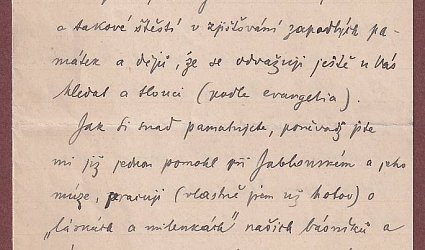 a takové štěstí v zjišťování zapadlých pa-
mátek a dějů, že se odvažuji ještě u Vás
hledat a tlouci (podle evangelia).
Jak si snad pamatujete, poněvadž jste
mi již jednou pomohl při Jablonském a jeho
múze, pracuji (vlastně jsem už hotov) o
„láskách a milenkách" našich básníků a